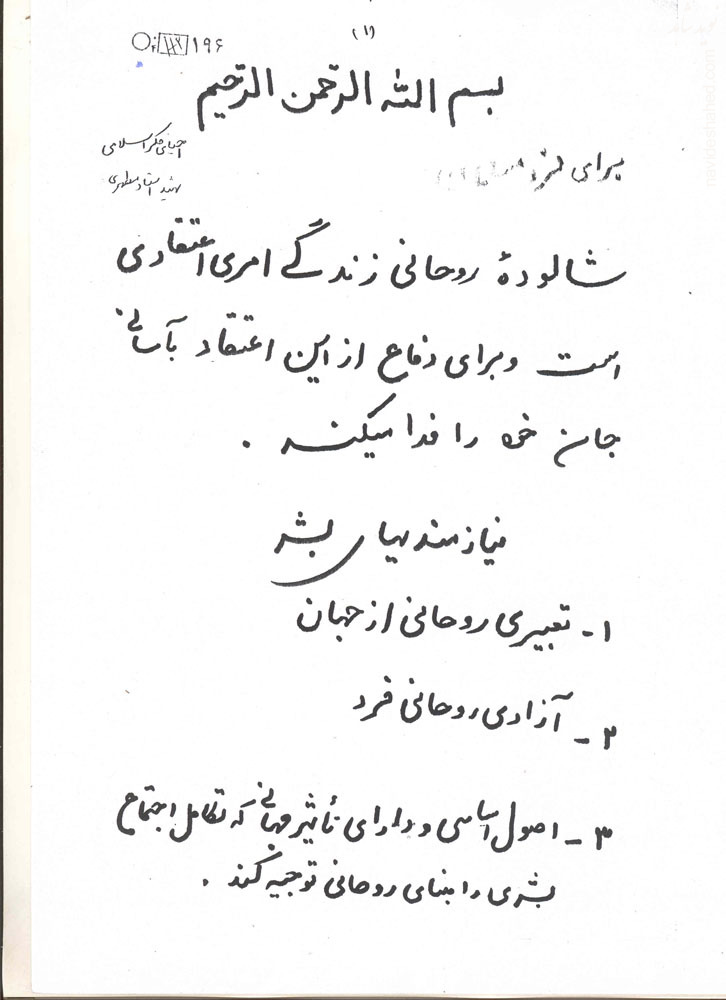 (۱)
۱۹۶
بسم الله الرحمن الرحیم
احیای فکر اسلامی
شهید استاد مطهری
برای
شالودهٔ روحانی زندگی امری اعتقادی
است و برای دفاع از این اعتقاد بآسانی
جان خود را فدا میکند .
نیازمندیهای بشر
۱- تعبیری روحانی از جهان
۲- آزادی روحانی فرد
۳- اصول اساسی و دارای تأثیر جهانی که تکامل اجتماع
بشری را بنای روحانی توجیه کند .
navideshahed.com